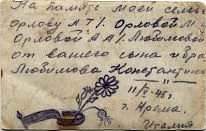 На память моей семье
Орлову А.Т.! Орловой М.
Орловой А.А! Любимовой
от вашего сына
Любимова Константина
11/V-45г
г.
Италия